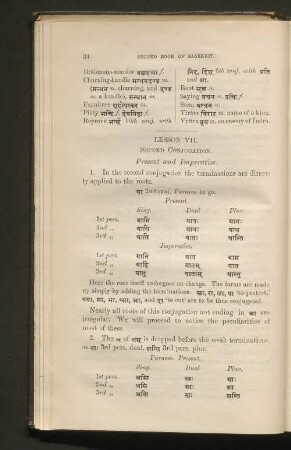 34 SECOND BOOK OF SANSKRIT.
Churning-handle मन्थनदण्ड m.
(मन्थन n. churning, and दण्ड
m. a handle), मन्थान m.
Piety भक्ति f.
with प्रति
and आ.
Root मूल n.
Saying वचन n. उक्ति f.
Son
Virâta विराट m. name of a king.
Vritra वृत्र m. an enemy of Indra.
LESSON VII.
SECOND CONJUGATION.
Present and Imperative.
1. In the second conjugation the terminations are direct-
ly applied to the roots.
या 2nd conj. Parasm. to go.
Present
Sing. Dual Plur.
1st pers. यामि यावः यामः
2nd „ यासि याथः याथ
3rd „ याति यातः यान्ति
Imperative.
1st pers. यानि याव याम
2nd „ याहि यातम् यात
3rd „ यातु याताम् यान्तु
Here the root itself undergoes no change. The forms are made up
simply by adding the terminations. 'to protect,'
and 'to cut' are to be thus conjugated.
Nearly all roots of this conjugation not ending in आ are
irregular. We will proceed to notice the peculiarities of
most of these.
2. The अ of अस् is dropped before the weak terminations,
as स्तः 3rd pers. dual, सन्ति 3rd pers. plur.
Parasm. Present.
Sing. Dual Plur.
1st pers. अस्मि स्वः स्मः
2nd „ असि स्थः स्थ
3rd „ अस्ति स्तः सन्ति